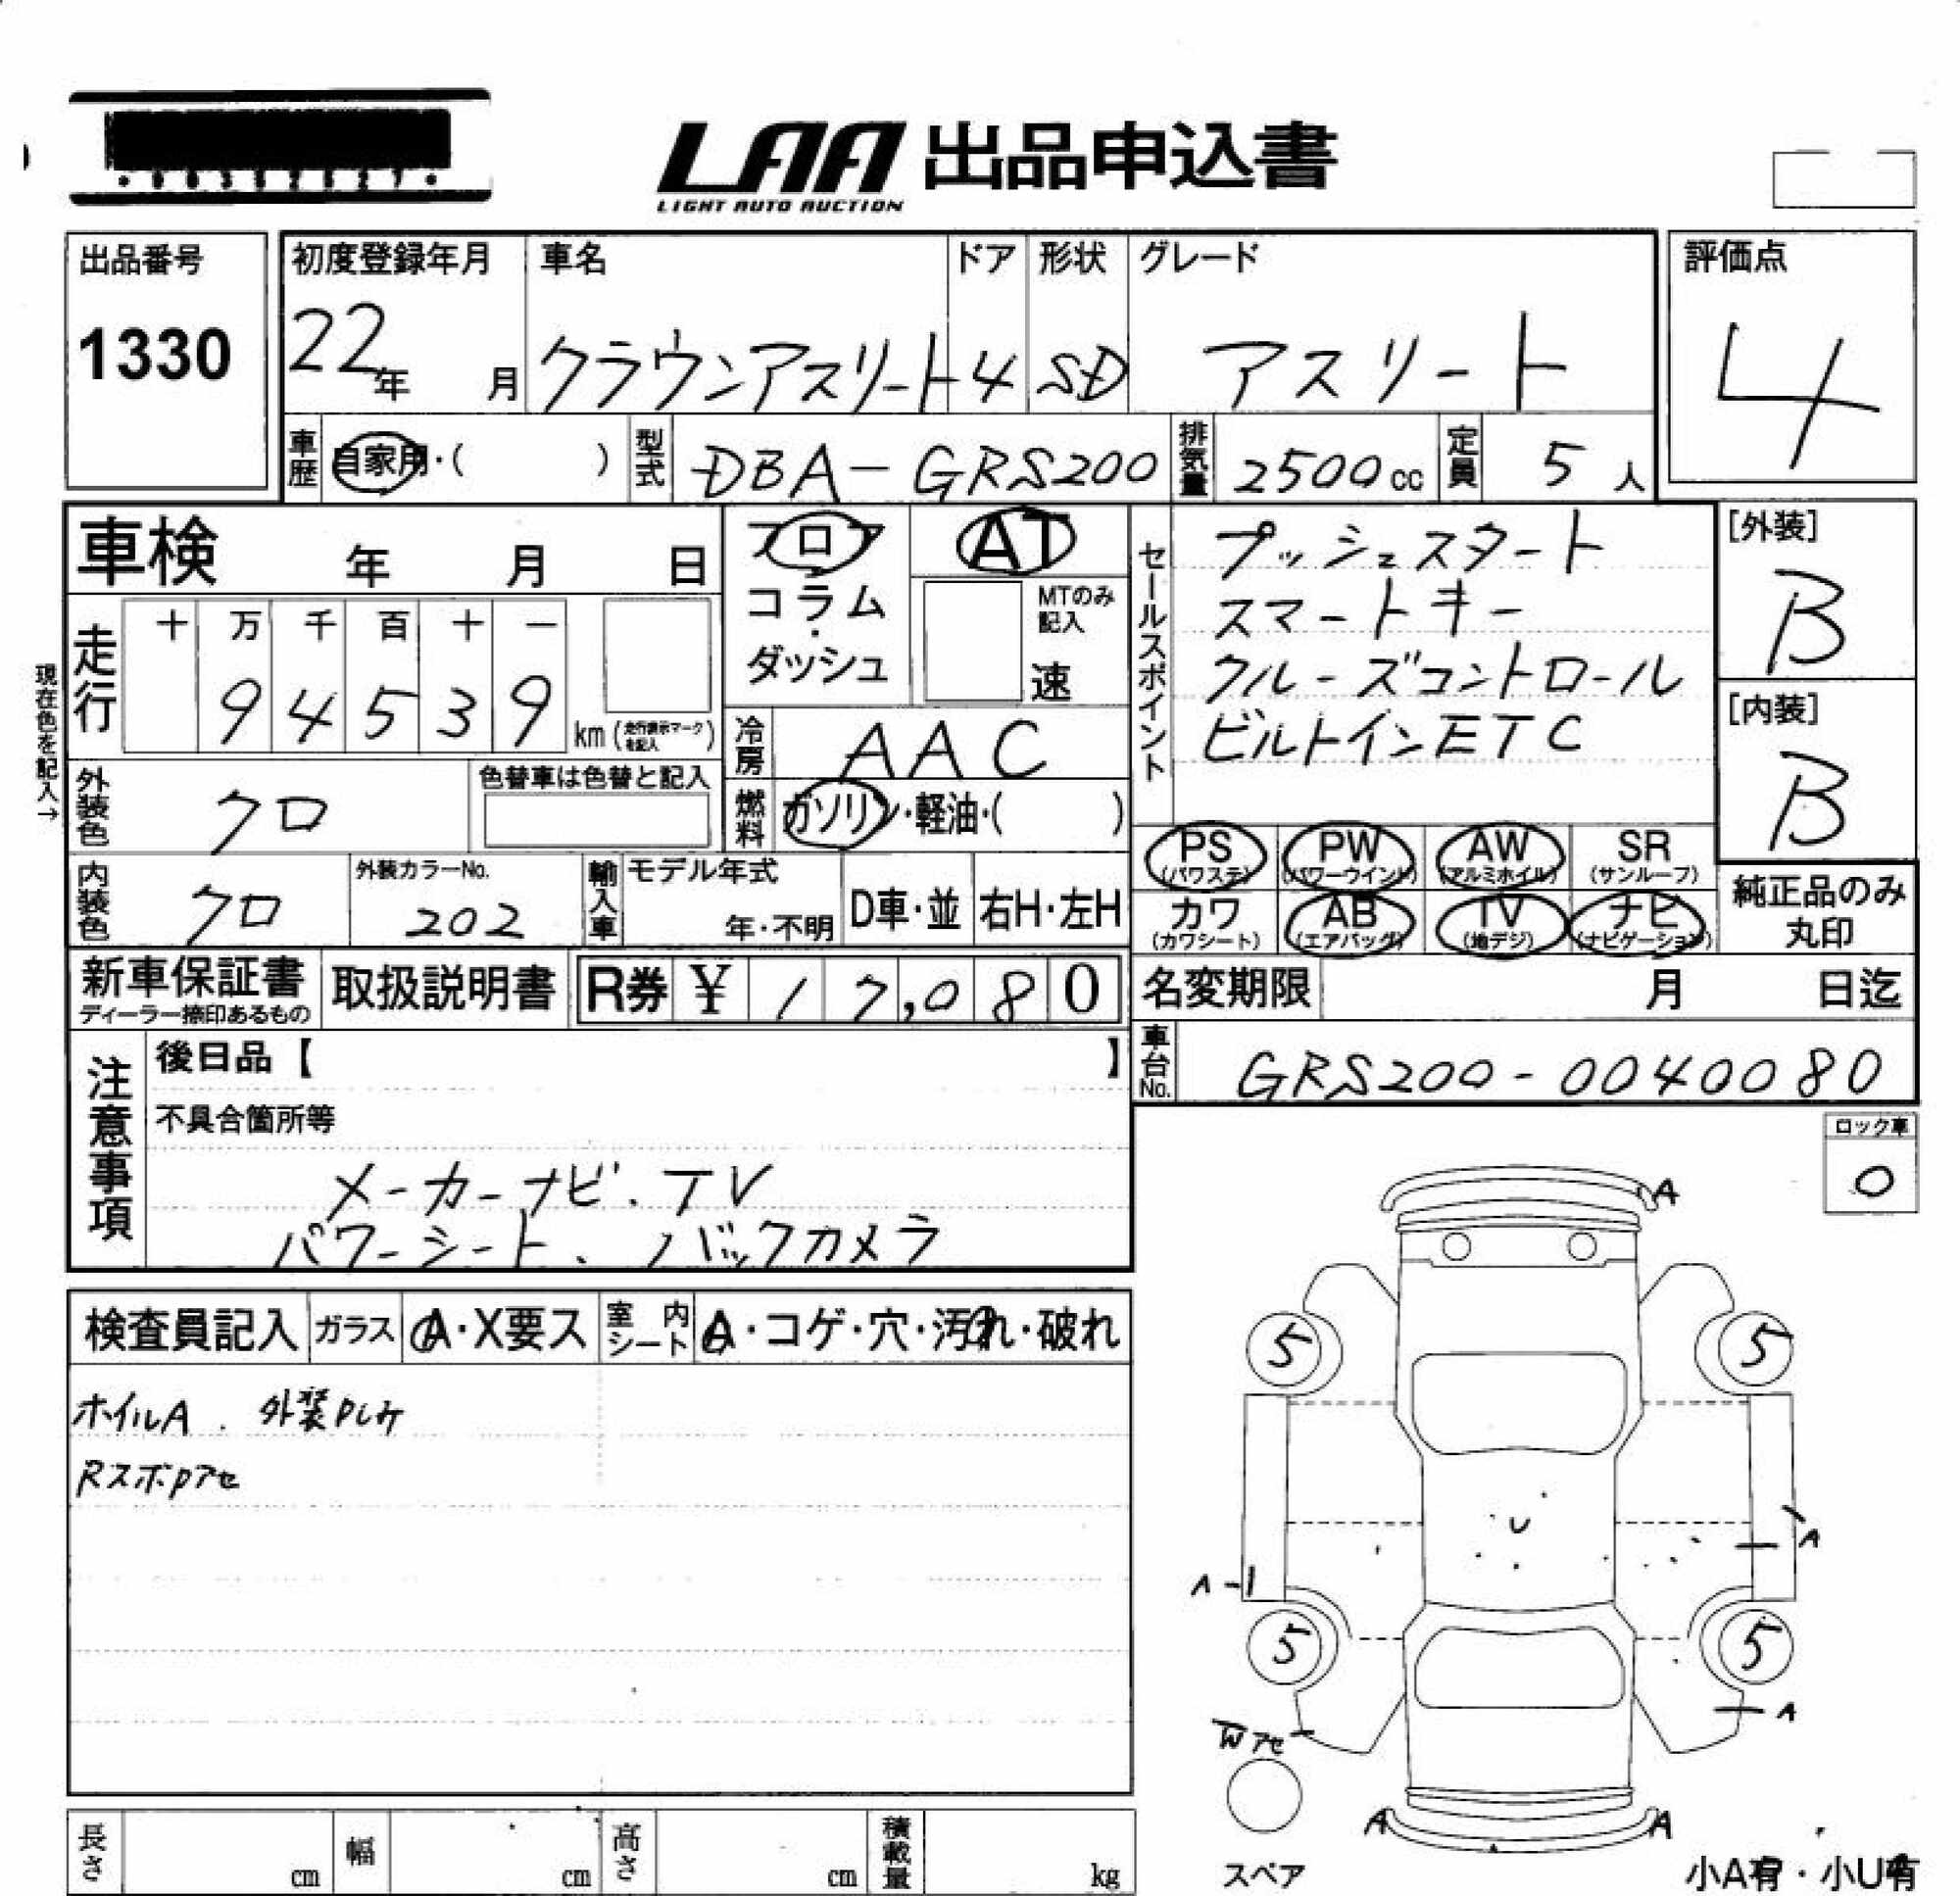 LAA 出品申込書
LIGHT AUTO AUCTION
出品番号
1330
初度登録年月
22年 月
車名
クラウンアスリート
ドア
4
形状
SD
グレード
アスリート
評価点
4
車歴 自家用・( )
型式 DBA-GRS200
排気量 2500cc
定員 5人
車検 年 月 日
フロア
コラム
・
ダッシュ
AT
MTのみ
記入
速
セールスポイント
プッシュスタート
スマートキー
クルーズコントロール
ビルトインETC
[外装]
B
[内装]
B
現在色を記入→
走行
十 万 千 百 十 一
9 4 5 3 9
km(走行表示マークを記入)
冷房 AAC
燃料 ガソリン・軽油・( )
外装色 クロ
色替車は色替と記入
内装色 クロ
外装カラーNo.
202
輸入車
モデル年式
年・不明
D車・並
右H・左H
PS
(パワステ)
PW
(パワーウインド)
AW
(アルミホイル)
SR
(サンルーフ)
カワ
(カワシート)
AB
(エアバッグ)
TV
(地デジ)
ナビ
(ナビゲーション)
純正品のみ
丸印
新車保証書
ディーラー捺印あるもの
取扱説明書
R券 ¥ 17,080
名変期限 月 日迄
車台No. GRS200-0040080
注意事項
後日品【 】
不具合箇所等
メーカーナビ、TV
パワーシート、バックカメラ
ロック車
0
検査員記入
ガラス
A・X要ス
室内シート
A・コゲ・穴・汚れ・破れ
ホイルA. 外装
RスポPアセ
A
5
5
U
A
A
5
5
A
Wアセ
A
A
スペア
小A有・小U有
長さ cm
幅 cm
高さ cm
積載量 kg